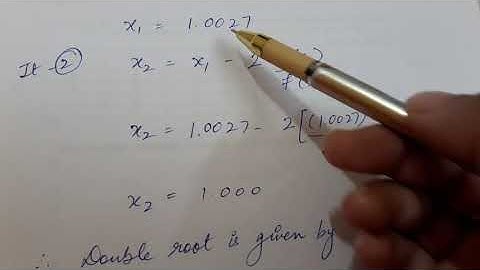 x₁ = 1.0027
It - ② x₂ = x₁ - 2
x₂ = 1.0027 - 2[(1.0027)
x₂ = 1.000
∴ Double root is given by